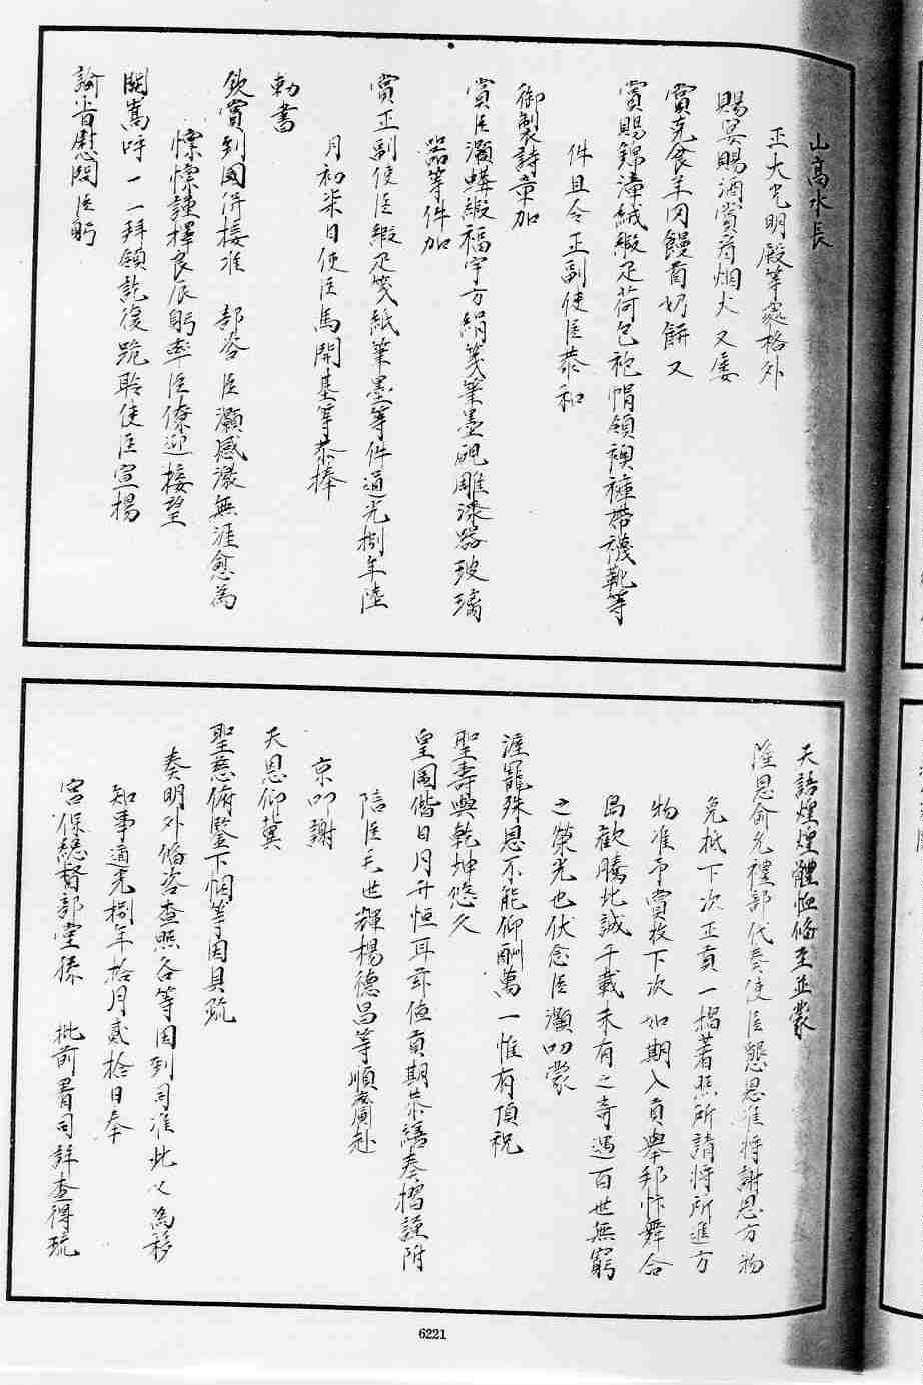 山高水長
正大光明殿等處格外
賜宴賜酒賞茗烟火又屢
賞克食羊肉饅首奶餅又
賞賜錦漳絨緞疋荷包袍帽領襖褲帶襪靴等
件且令正副使臣恭和
御製詩章加
賞臣灝蟒緞福字方絹箋筆墨硯雕漆器玻璃
器等件加
賞正副使臣緞疋箋紙筆墨等件道光捌年陸
月初柒日使臣馬開基等恭捧
勅書
欽賞到國併接准 部咨臣灝感激無涯愈為
慄慄謹擇良辰躬率臣僚迎接望
闕嵩呼一一拜領訖復跪聆使臣宣揚
諭旨慰問臣躬
天語煌煌體恤備至並蒙
隆恩俞允禮部代奏使臣懇恩准將謝恩方物
免抵下次正貢一摺著照所請將所進方
物准予賞收下次如期入貢舉邦忭舞合
島歡騰此誠千載未有之奇遇百世無窮
之榮光也伏念臣灝叨蒙
渥寵殊恩不能仰酬萬一惟有頂祝
聖壽與乾坤悠久
皇圖偕日月升恒耳茲值貢期恭繕奏摺謹附
陪臣毛世輝楊德昌等順齎赴
京叩謝
天恩仰冀
聖慈俯鑒下悃等因具疏
奏明外備咨查照各等因到司准此以為移
知事道光捌年拾月貳拾日奉
宮保總督部堂孫 批前署司詳查得琉
6221